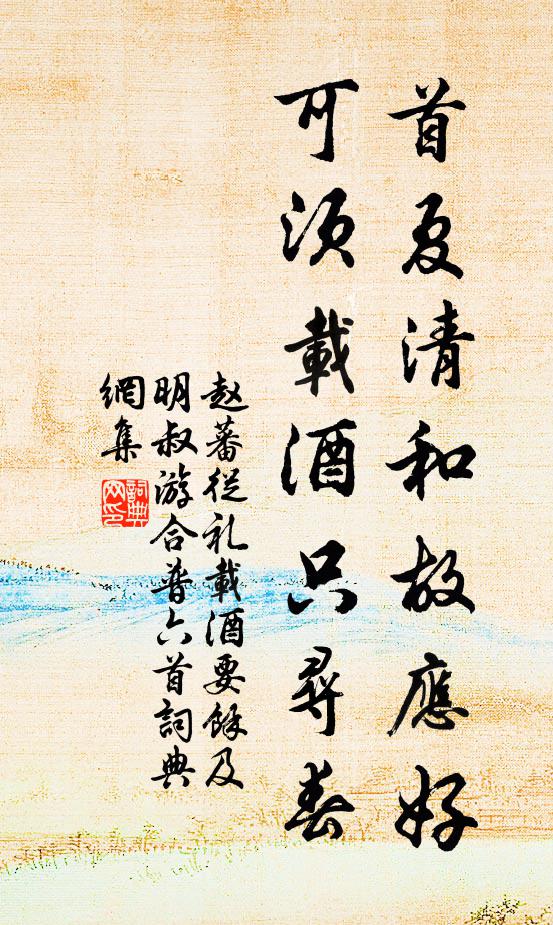 首夏清和故應好
可須載酒只尋春
赵蕃從礼載酒要餘及
明叔游合普六首詞典
網集
詞典网印